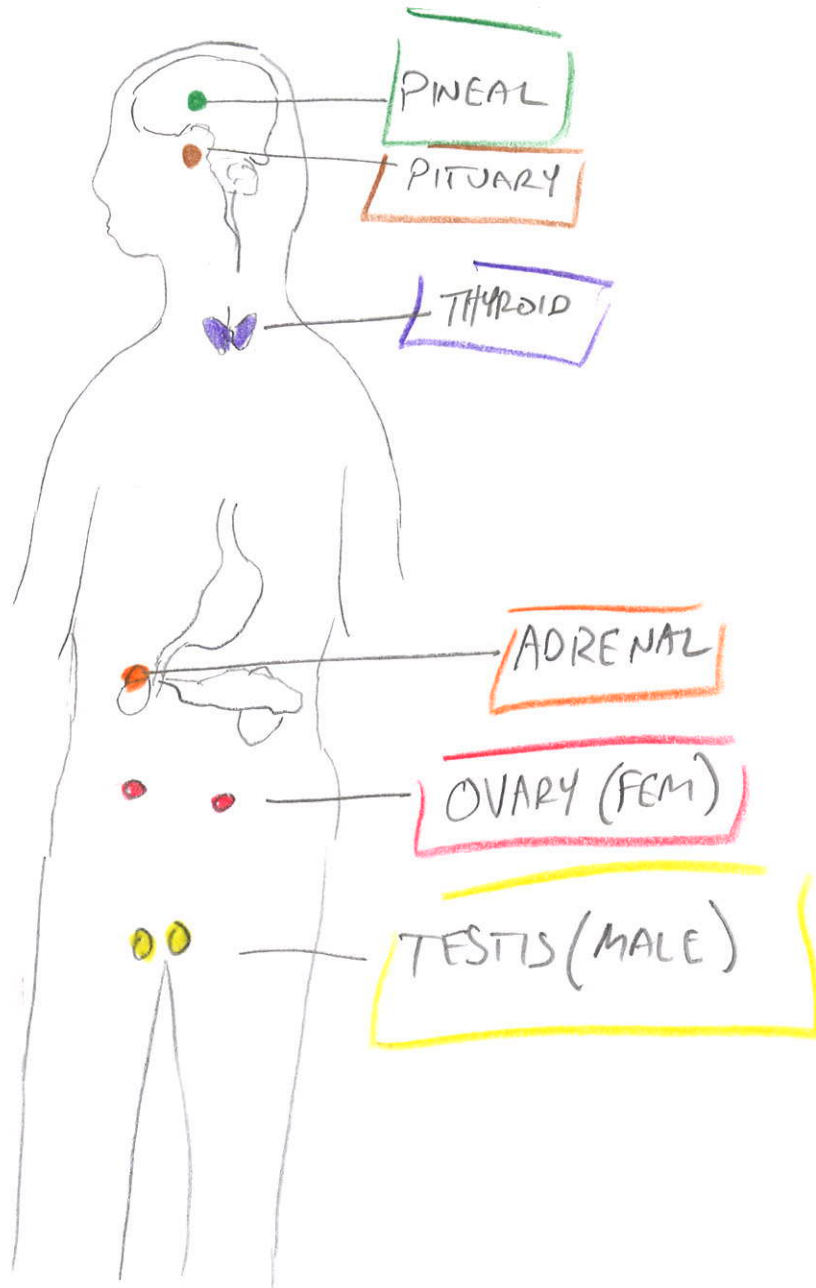 PINEAL
PITUARY
THYROID
ADRENAL
OVARY (FEM)
TESTIS (MALE)